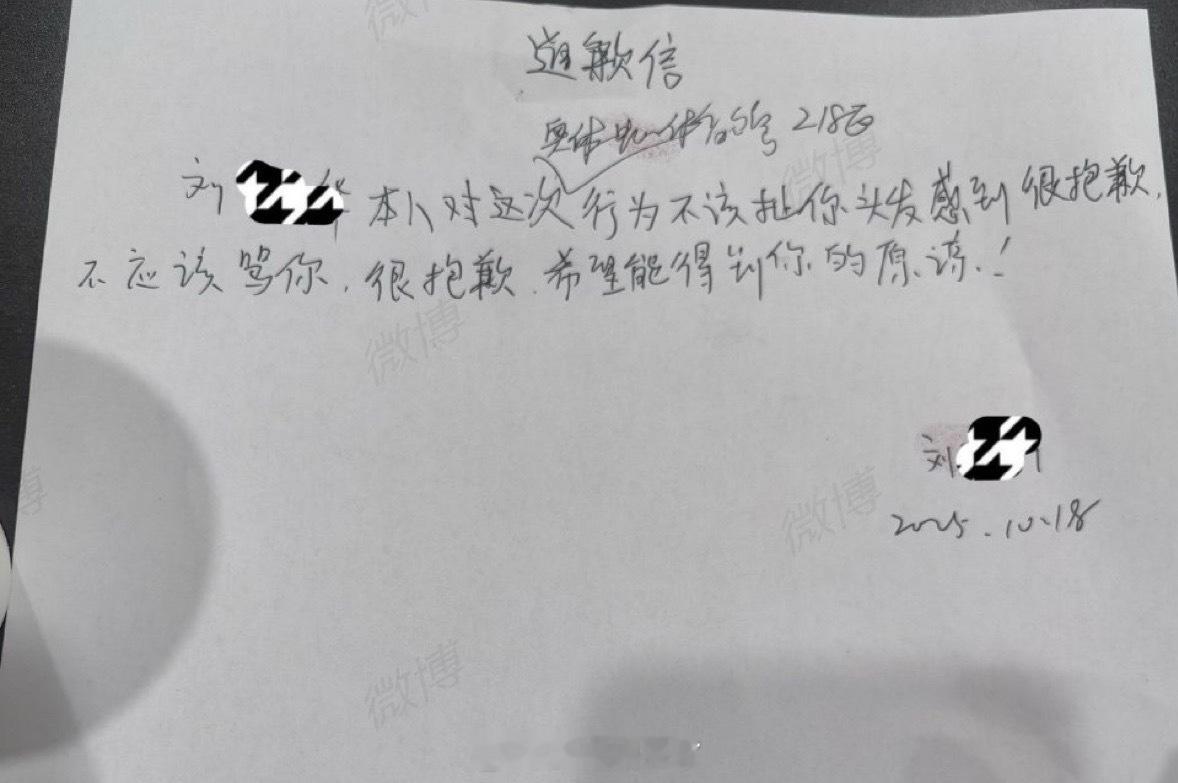 道歉信
奥体中心体育场 218区
刘 本人对这次行为不该扯你头发感到很抱歉,
不应该骂你,很抱歉,希望能得到你的原谅!
刘
2025.10.18
微博
微博
微博
微博
微博